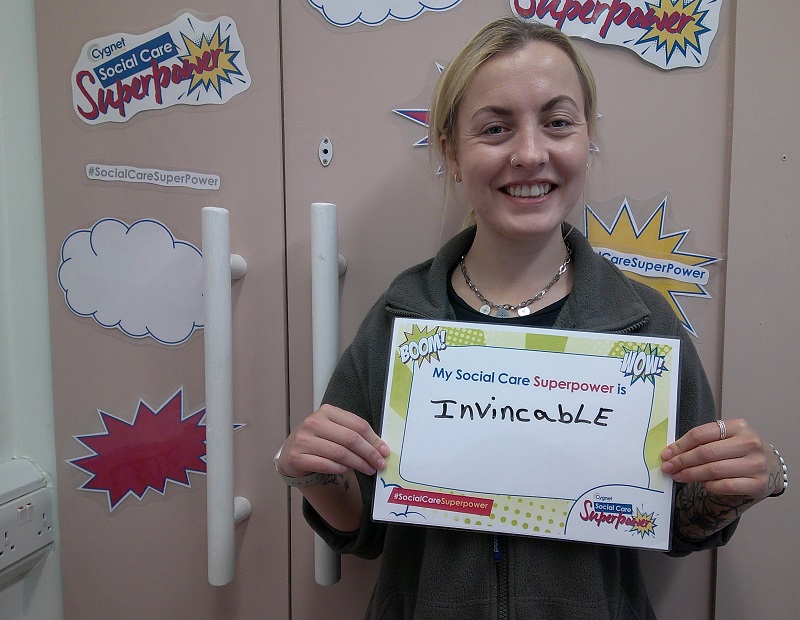 Cygnet
Social Care
Superpower
Superpower
#SocialCareSuperPower
lCareSuperPower
BOOM!
WOW!
My Social Care Superpower is
InVincabLE
#SocialCareSuperpower
Cygnet
Social Care
Superpower